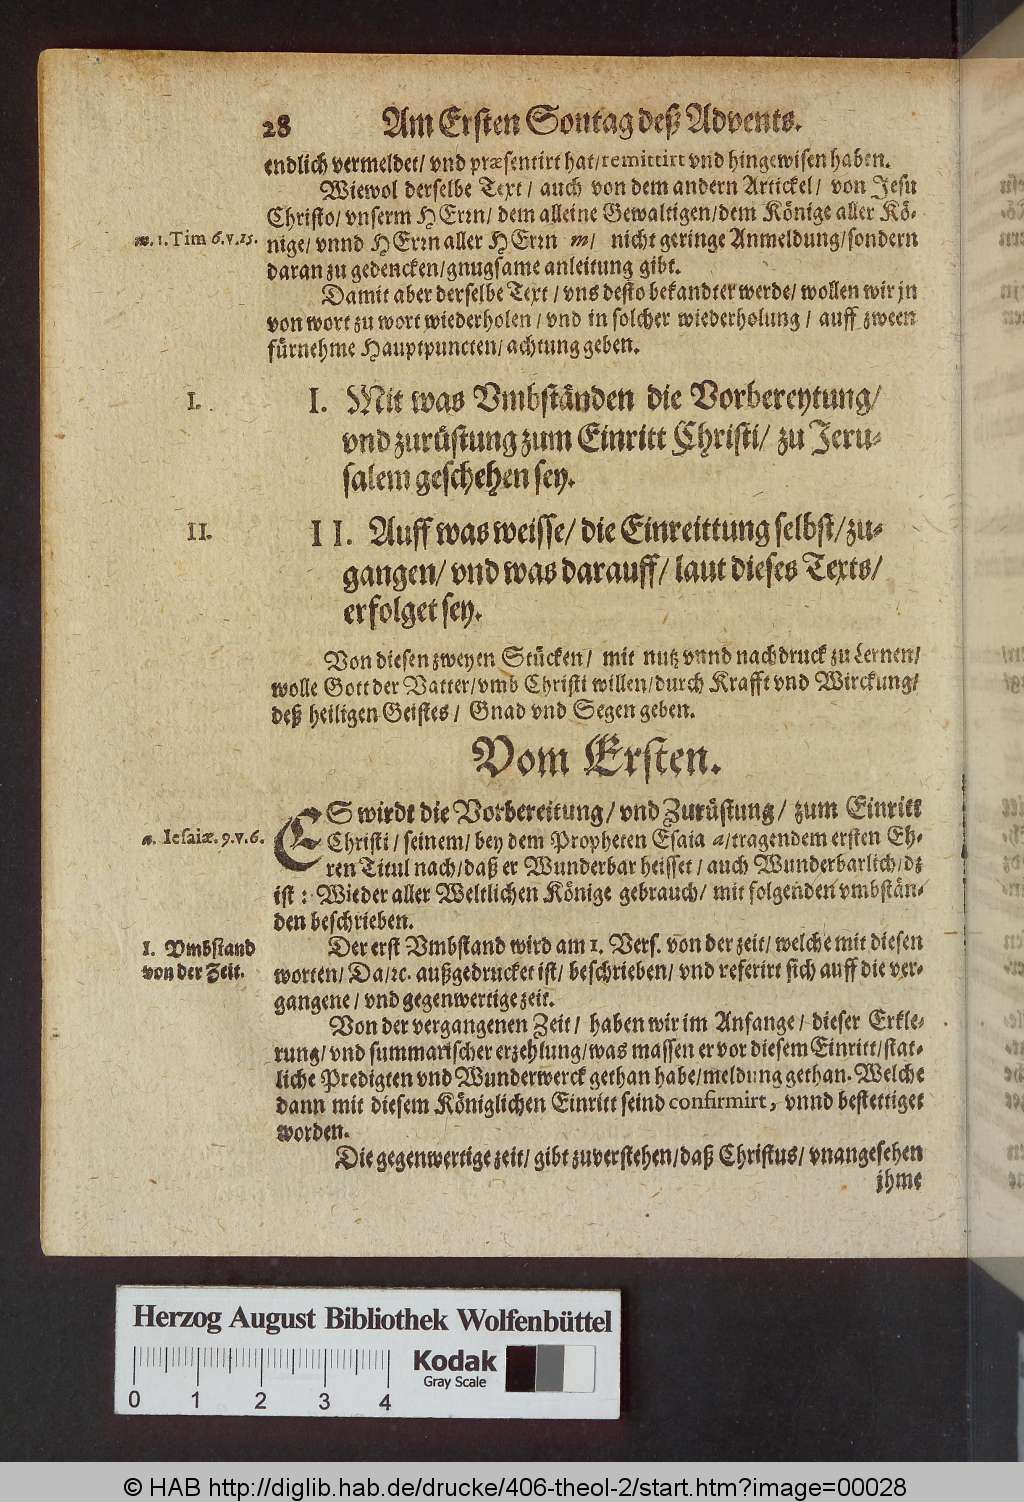 28 Am Ersten Sontag deß Advents.
endlich vermeldet/ vnd præsentirt hat/ remittirt vnd hingewisen haben.
Wiewol derselbe Text/ auch von dem andern Artickel/ von Jesu
Christo/ vnserm HErrn/ dem alleine Gewaltigen/ dem Könige aller Kö-
m. 1. Tim 6. v. 15.
nige/ vnnd HErrn aller HErrn m/ nicht geringe Anmeldung/ sondern
daran zu gedencken/ gnugsame anleitung gibt.
Damit aber derselbe Text/ vns desto bekandter werde/ wollen wir jn
von wort zu wort wiederholen/ vnd in solcher wiederholung/ auff zween
fürnehme Hauptpuncten/ achtung geben.
I.
I. Mit was Vmbständen die Vorbereytung/
vnd zurüstung zum Einritt Christi/ zu Jeru-
salem geschehen sey.
II.
II. Auff was weisse/ die Einreittung selbst/ zu-
gangen/ vnd was darauff/ laut dieses Texts/
erfolget sey.
Von diesen zweyen Stücken/ mit nutz vnnd nachdruck zu Lernen/
wolle Gott der Vatter/ vmb Christi willen/ durch Krafft vnd Wirckung/
deß heiligen Geistes/ Gnad vnd Segen geben.
Vom Ersten.
ES wirdt die Vorbereitung/ vnd Zurüstung/ zum Einritt
a. Iesaiæ. 9. v. 6.
Christi/ seinem/ bey dem Propheten Esaia a/ tragendem ersten Eh-
ren Titul nach/ daß er Wunderbar heisset/ auch Wunderbarlich/ dz
ist: Wieder aller Weltlichen Könige gebrauch/ mit folgenden vmbstän-
den beschrieben.
1. Vmbstand
von der Zeit.
Der erst Vmbstand wird am 1. Vers. von der zeit/ welche mit diesen
worten/ Da/ ꝛc. außgedrucket ist/ beschrieben/ vnd referirt sich auff die ver-
gangene/ vnd gegenwertige zeit.
Von der vergangenen Zeit/ haben wir im Anfange/ dieser Erkle-
rung/ vnd summarischer erzehlung/ was massen er vor diesem Einritt/ stat-
liche Predigten vnd Wunderwerck gethan habe/ meldung gethan. Welche
dann mit diesem Königlichen Einritt seind confirmirt, vnnd bestettiget
worden.
Die gegenwertige zeit/ gibt zuverstehen/ daß Christus/ vnangesehen
jhme
Herzog August Bibliothek Wolfenbüttel
0 1 2 3 4
Kodak
Gray Scale
© HAB http://diglib.hab.de/drucke/406-theol-2/start.htm?image=00028